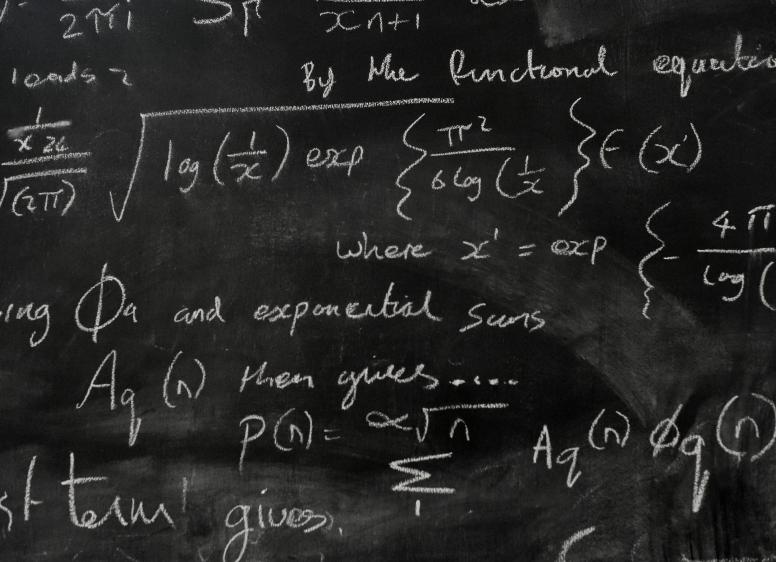 2πi xn+1
leads By the functional equation
x^(1/24) / √(2π) √ log (1/x) exp { π² / 6 log (1/x } F (x')
where x' = exp { - 4π / log (
ing ϕq and exponential sums
Aq (n) then gives.....
p(n) = ∑ Aq(n) ϕq(n)
α√n
1
st term gives.